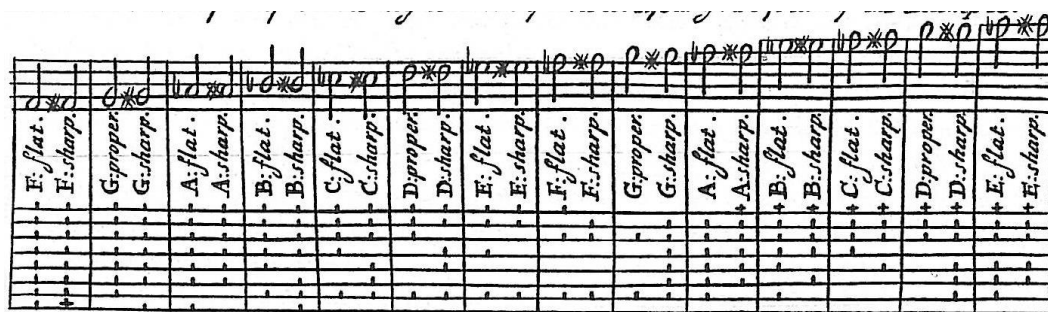 F: flat. F: sharp. G: proper. G: sharp. A: flat. A: sharp. B: flat. B: sharp. C: flat. C: sharp. D: proper. D: sharp. E: flat. E: sharp. F: flat. F: sharp. G: proper. G: sharp. A: flat. A: sharp. B: flat. B: sharp. C: flat. C: sharp. D: proper. D: sharp. E: flat. E: sharp.